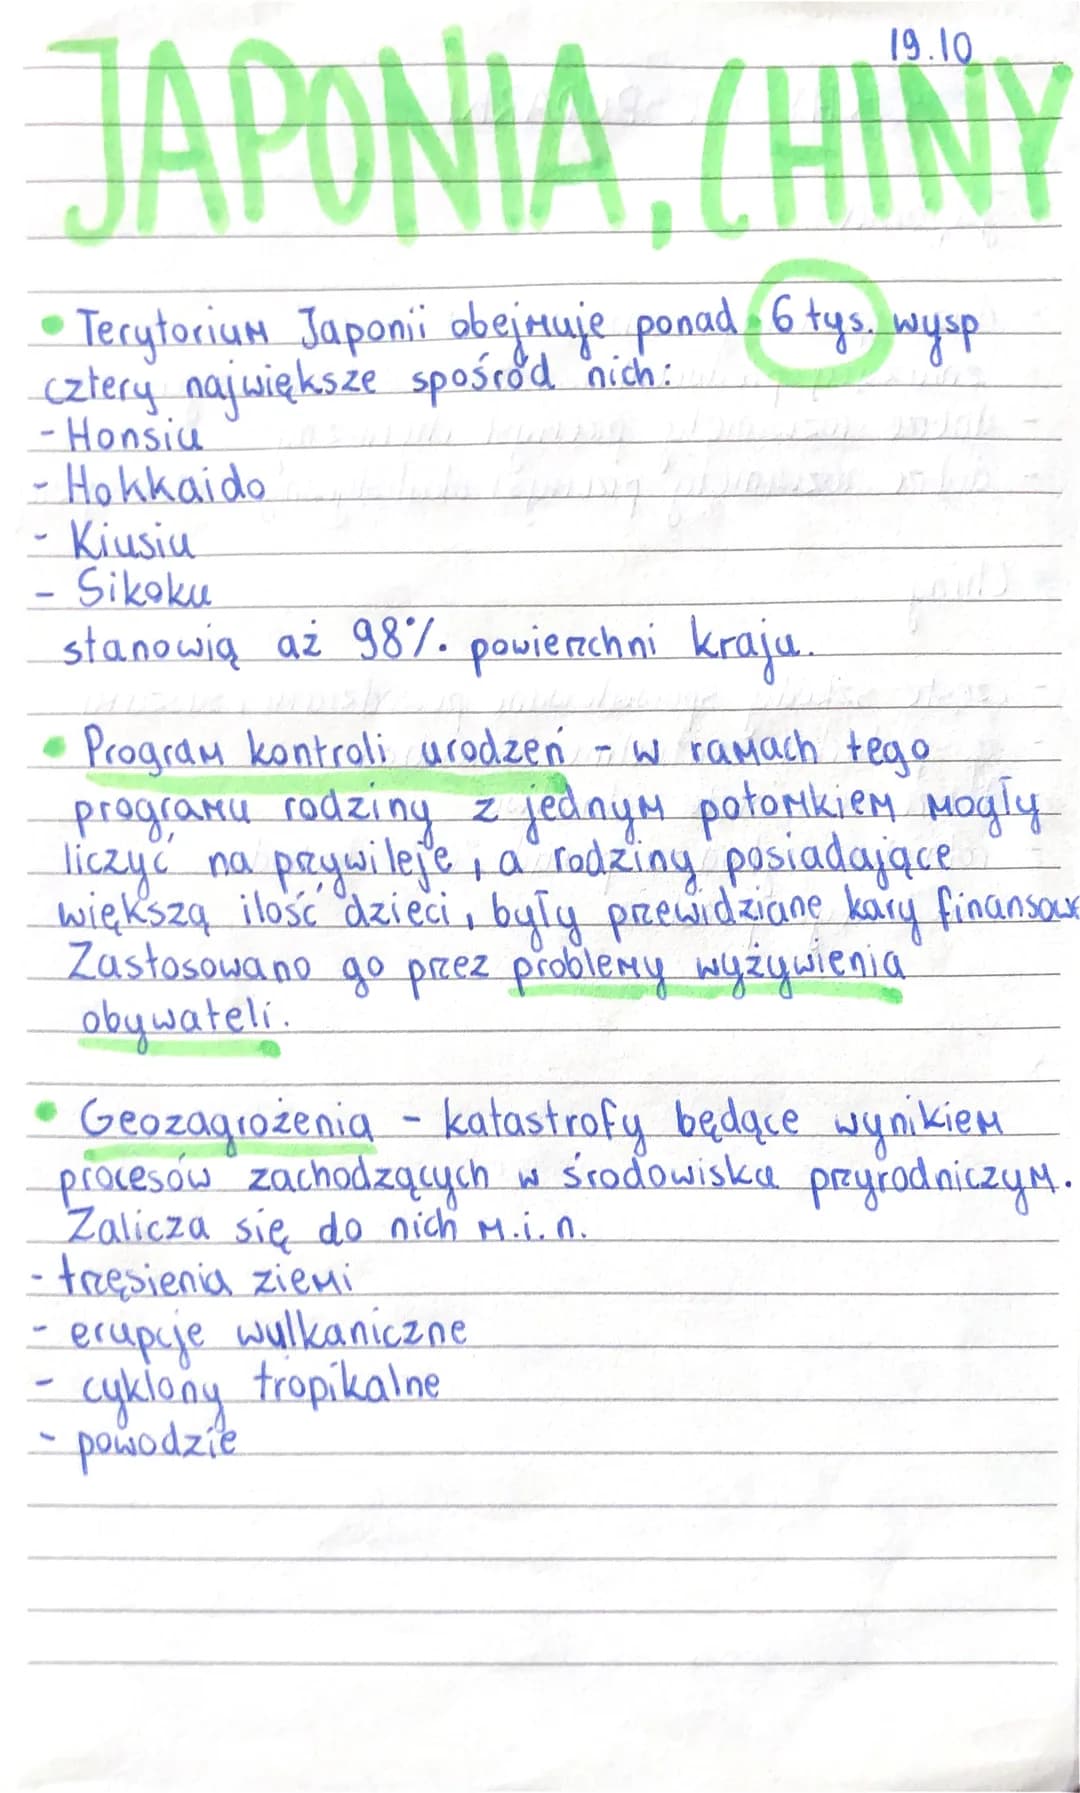 19.10
JAPONIA, CHINY
• Terytorium Japonii obejmuje ponad 6 tys. wysp
cztery największe spośród nich:
- Honsiu
- Hokkaido
- Kiusiu
- Sikoku
stanowią aż 98% powierzchni kraju.
• Program kontroli urodzeń - w ramach tego
programu rodziny z jednym potomkiem mogły
liczyć na przywileje, a rodziny posiadające
większą ilość dzieci, były przewidziane kary finansowe
Zastosowano go przez problemy wyżywienia
obywateli.
• Geozagrożenia - katastrofy będące wynikiem
procesów zachodzących w środowisku przyrodniczym.
Zalicza się do nich m.i.n.
- trzęsienia ziemi
- erupcje wulkaniczne
- cyklony tropikalne
- powodzie